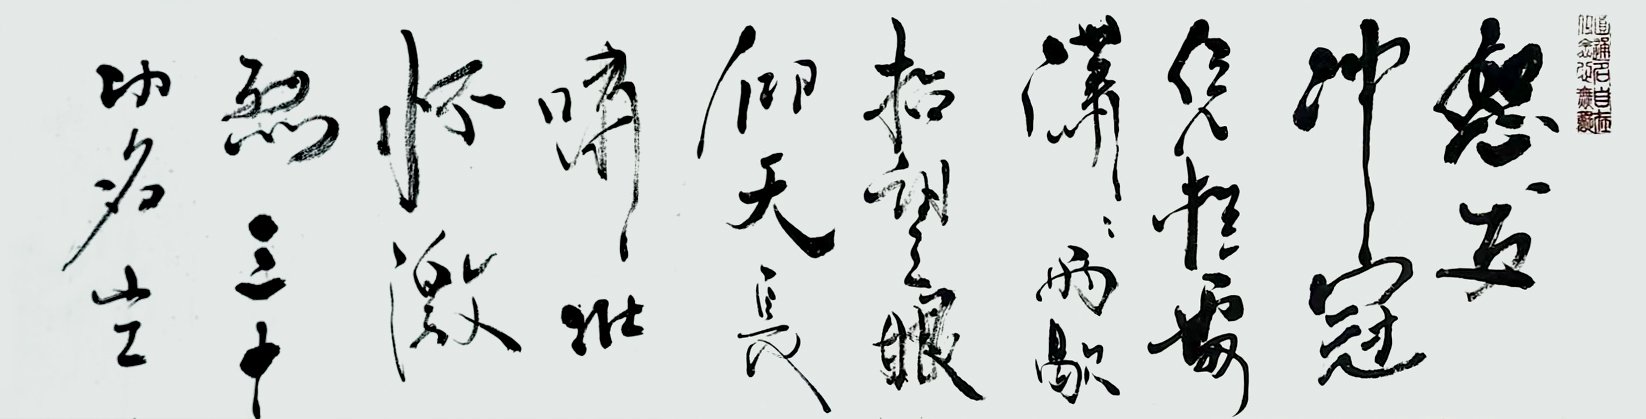 怒发
冲冠
凭栏處
瀟瀟雨歇
抬望眼
仰天長
嘯壮
怀激
烈三十
功名尘